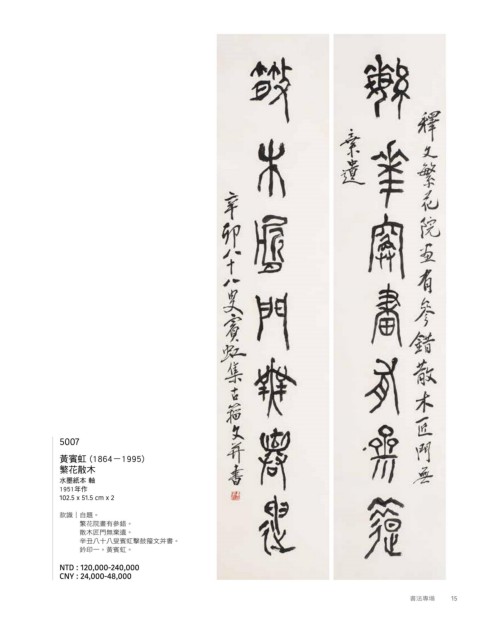 繁華院畫有參錯
釋文繁花院畫有參錯散木匠門無
棄遺
散木匠門無棄遺
辛卯八十八叟賓虹集古籀文并書
5007
黃賓虹 (1864－1995)
繁花散木
水墨紙本 軸
1951年作
102.5 x 51.5 cm x 2
款識｜台題。
繁花院畫有參錯。
散木匠門無棄遺。
辛丑八十八叟賓虹擊鼓籀文并書。
鈐印一。黃賓虹。
NTD : 120,000-240,000
CNY : 24,000-48,000
書法專場 15